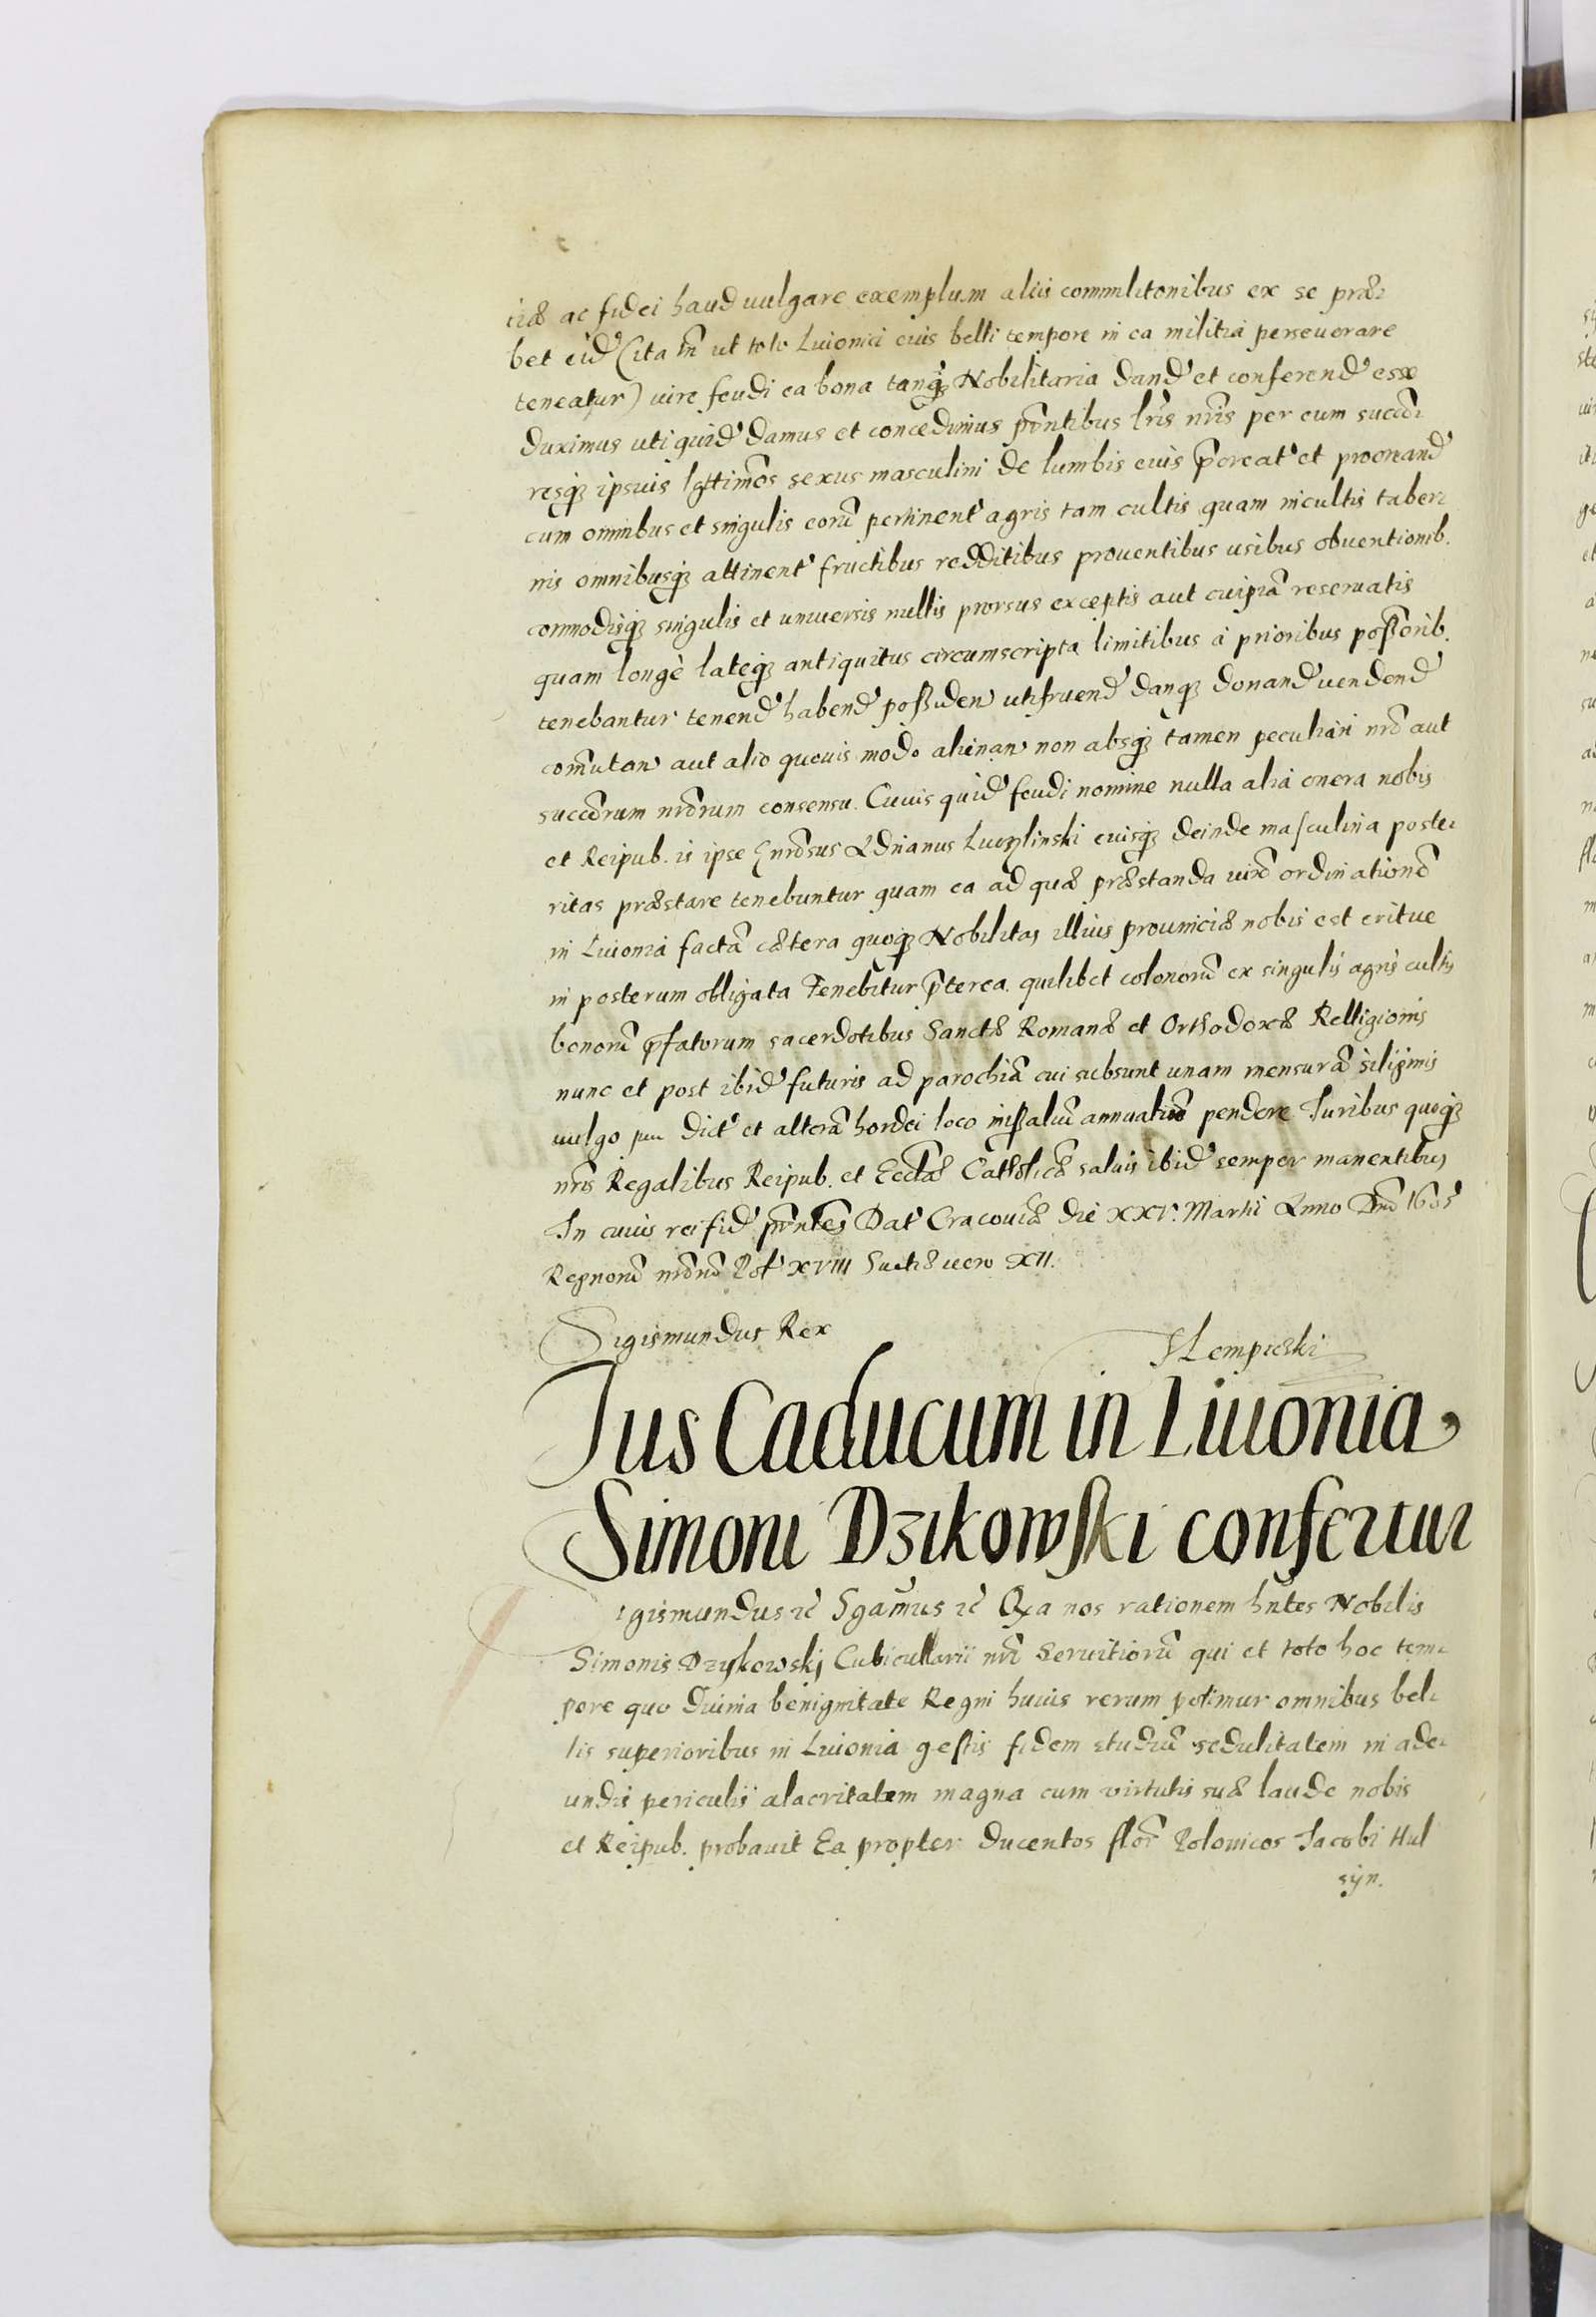 ciæ ac fidei haud vulgare exemplum aliis commilitonibus ex se præ-
bet eid' (ita tñ ut toto Livonici eius belli tempore in ea militia perseverare
teneatur) iure feudi ea bona tanq3 Nobilitaria dand' et conferend' esse
duximus uti quid' damus et concedimus pñtibus lris nris per eum succō-
resq3 ipsius lgttimos sexus masculini de lumbis eius pcreat' et procreand'
cum omnibus et singulis eorū pertinent' agris tam cultis quam incultis taber-
nis omnibusq3 attinent' fructibus redditibus proventibus usibus obventionib.
commodisq3 singulis et universis nullis prorsus exceptis aut cuipiā reservatis
quam longè lateq3 antiquitus circumscripta limitibus à prioribus possorib.
tenebantur tenend' habend' possiden' utifruend' danq3 donand' vendend'
comutan' aut alio quovis modo alienan' non absq3 tamen peculiari nrō aut
succōrum nrōrum consensu. Cuius quid' feudi nomine nulla alia onera nobis
et Reipub. is ipse Gnrōsus Adrianus eiusq3 deinde masculina poste-
ritas præstare tenebuntur quam ea ad quæ præstanda iuxō ordinationē
in Livonia factā cætera quoq3 Nobilitas illius provinciæ nobis est eritve
in posterum obligata Tenebitur pterea quilibet colonorū ex singulis agris cultis
bonorū pfatorum sacerdotibus Sanctæ Romanæ et Orthodoxæ Relligionis
nunc et post ibid' futuris ad parochiā cui subsunt unam mensurā siliginis
vulgo pur dict' et alterā hordei loco missaliū annuatim pendere Iuribus quoq3
nris Regalibus Reipub. et Ecclæ Catholicæ salvis ibid' semper manentibus
In cuius rei fid' pñtes Dat' Cracoviæ die XXV. Martii Anno Dnī 1605
Regnorū nrōrū Pol' XVIII Suetiæ vero XII.
Sigismundus Rex
HLempicski
Ius Caducum in Livonia
Simoni Dzikowski confertur
igismundus &c Sgamus &c Qia nos rationem hñtes Nobilis
Simonis Dzykowskj Cubicullarii nrī Servitiorū qui et toto hoc tem-
pore quo Divina benignitate Regni huius rerum potimur omnibus bel-
lis superioribus in Livonia gestis fidem studiū sedulitatem in ade-
undis periculis alacritatem magna cum virtutis suæ laude nobis
et Reipub. probavit Ea propter ducentos flor Polonicos Iacobi Hul
syn.